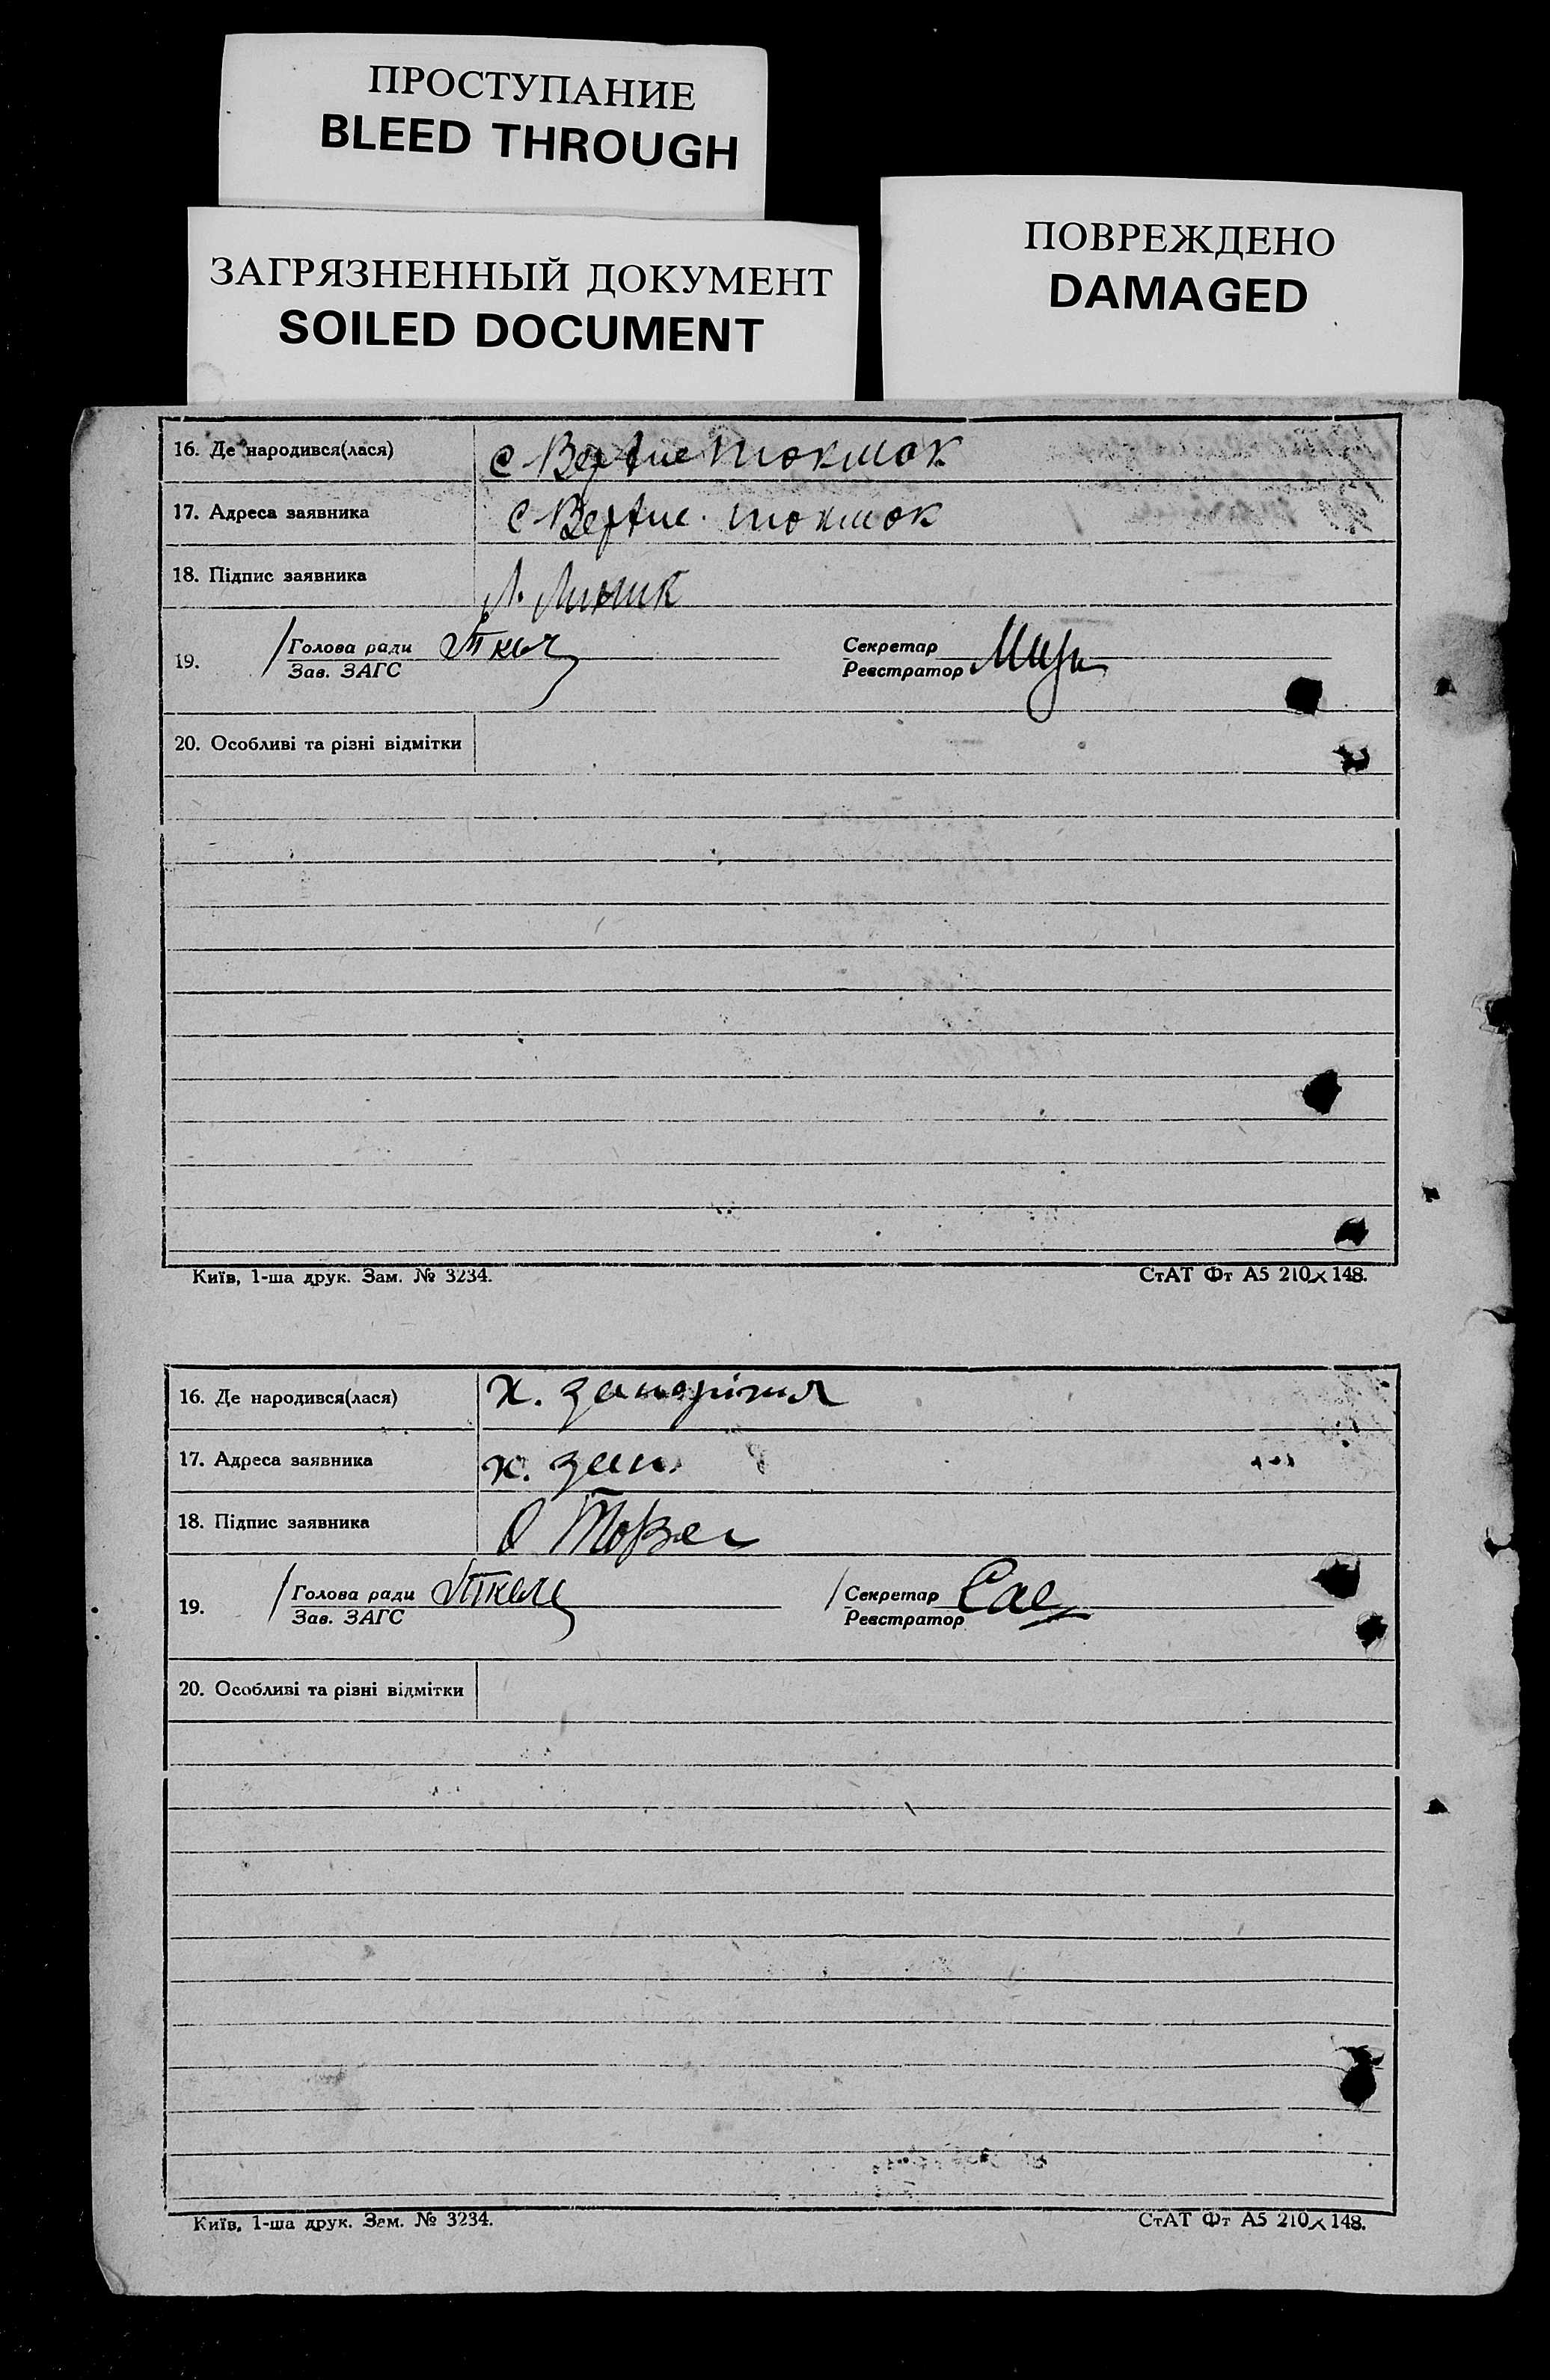 ПРОСТУПАНИЕ
BLEED THROUGH
ЗАГРЯЗНЕННЫЙ ДОКУМЕНТ
SOILED DOCUMENT
ПОВРЕЖДЕНО
DAMAGED
16. Де народився(лася) с токмок
17. Адреса заявника с токмок
18. Підпис заявника Л. Линик
19. Голова ради Секретар
Зав. ЗАГС Реєстратор
20. Особливі та різні відмітки
Київ, 1-ша друк. Зам. № 3234. СтАТ Фт А5 210×148.
16. Де народився(лася) х. запоріжжя
17. Адреса заявника х. зап.
18. Підпис заявника
19. Голова ради Секретар
Зав. ЗАГС Реєстратор
20. Особливі та різні відмітки
Київ, 1-ша друк. Зам. № 3234. СтАТ Фт А5 210×148.